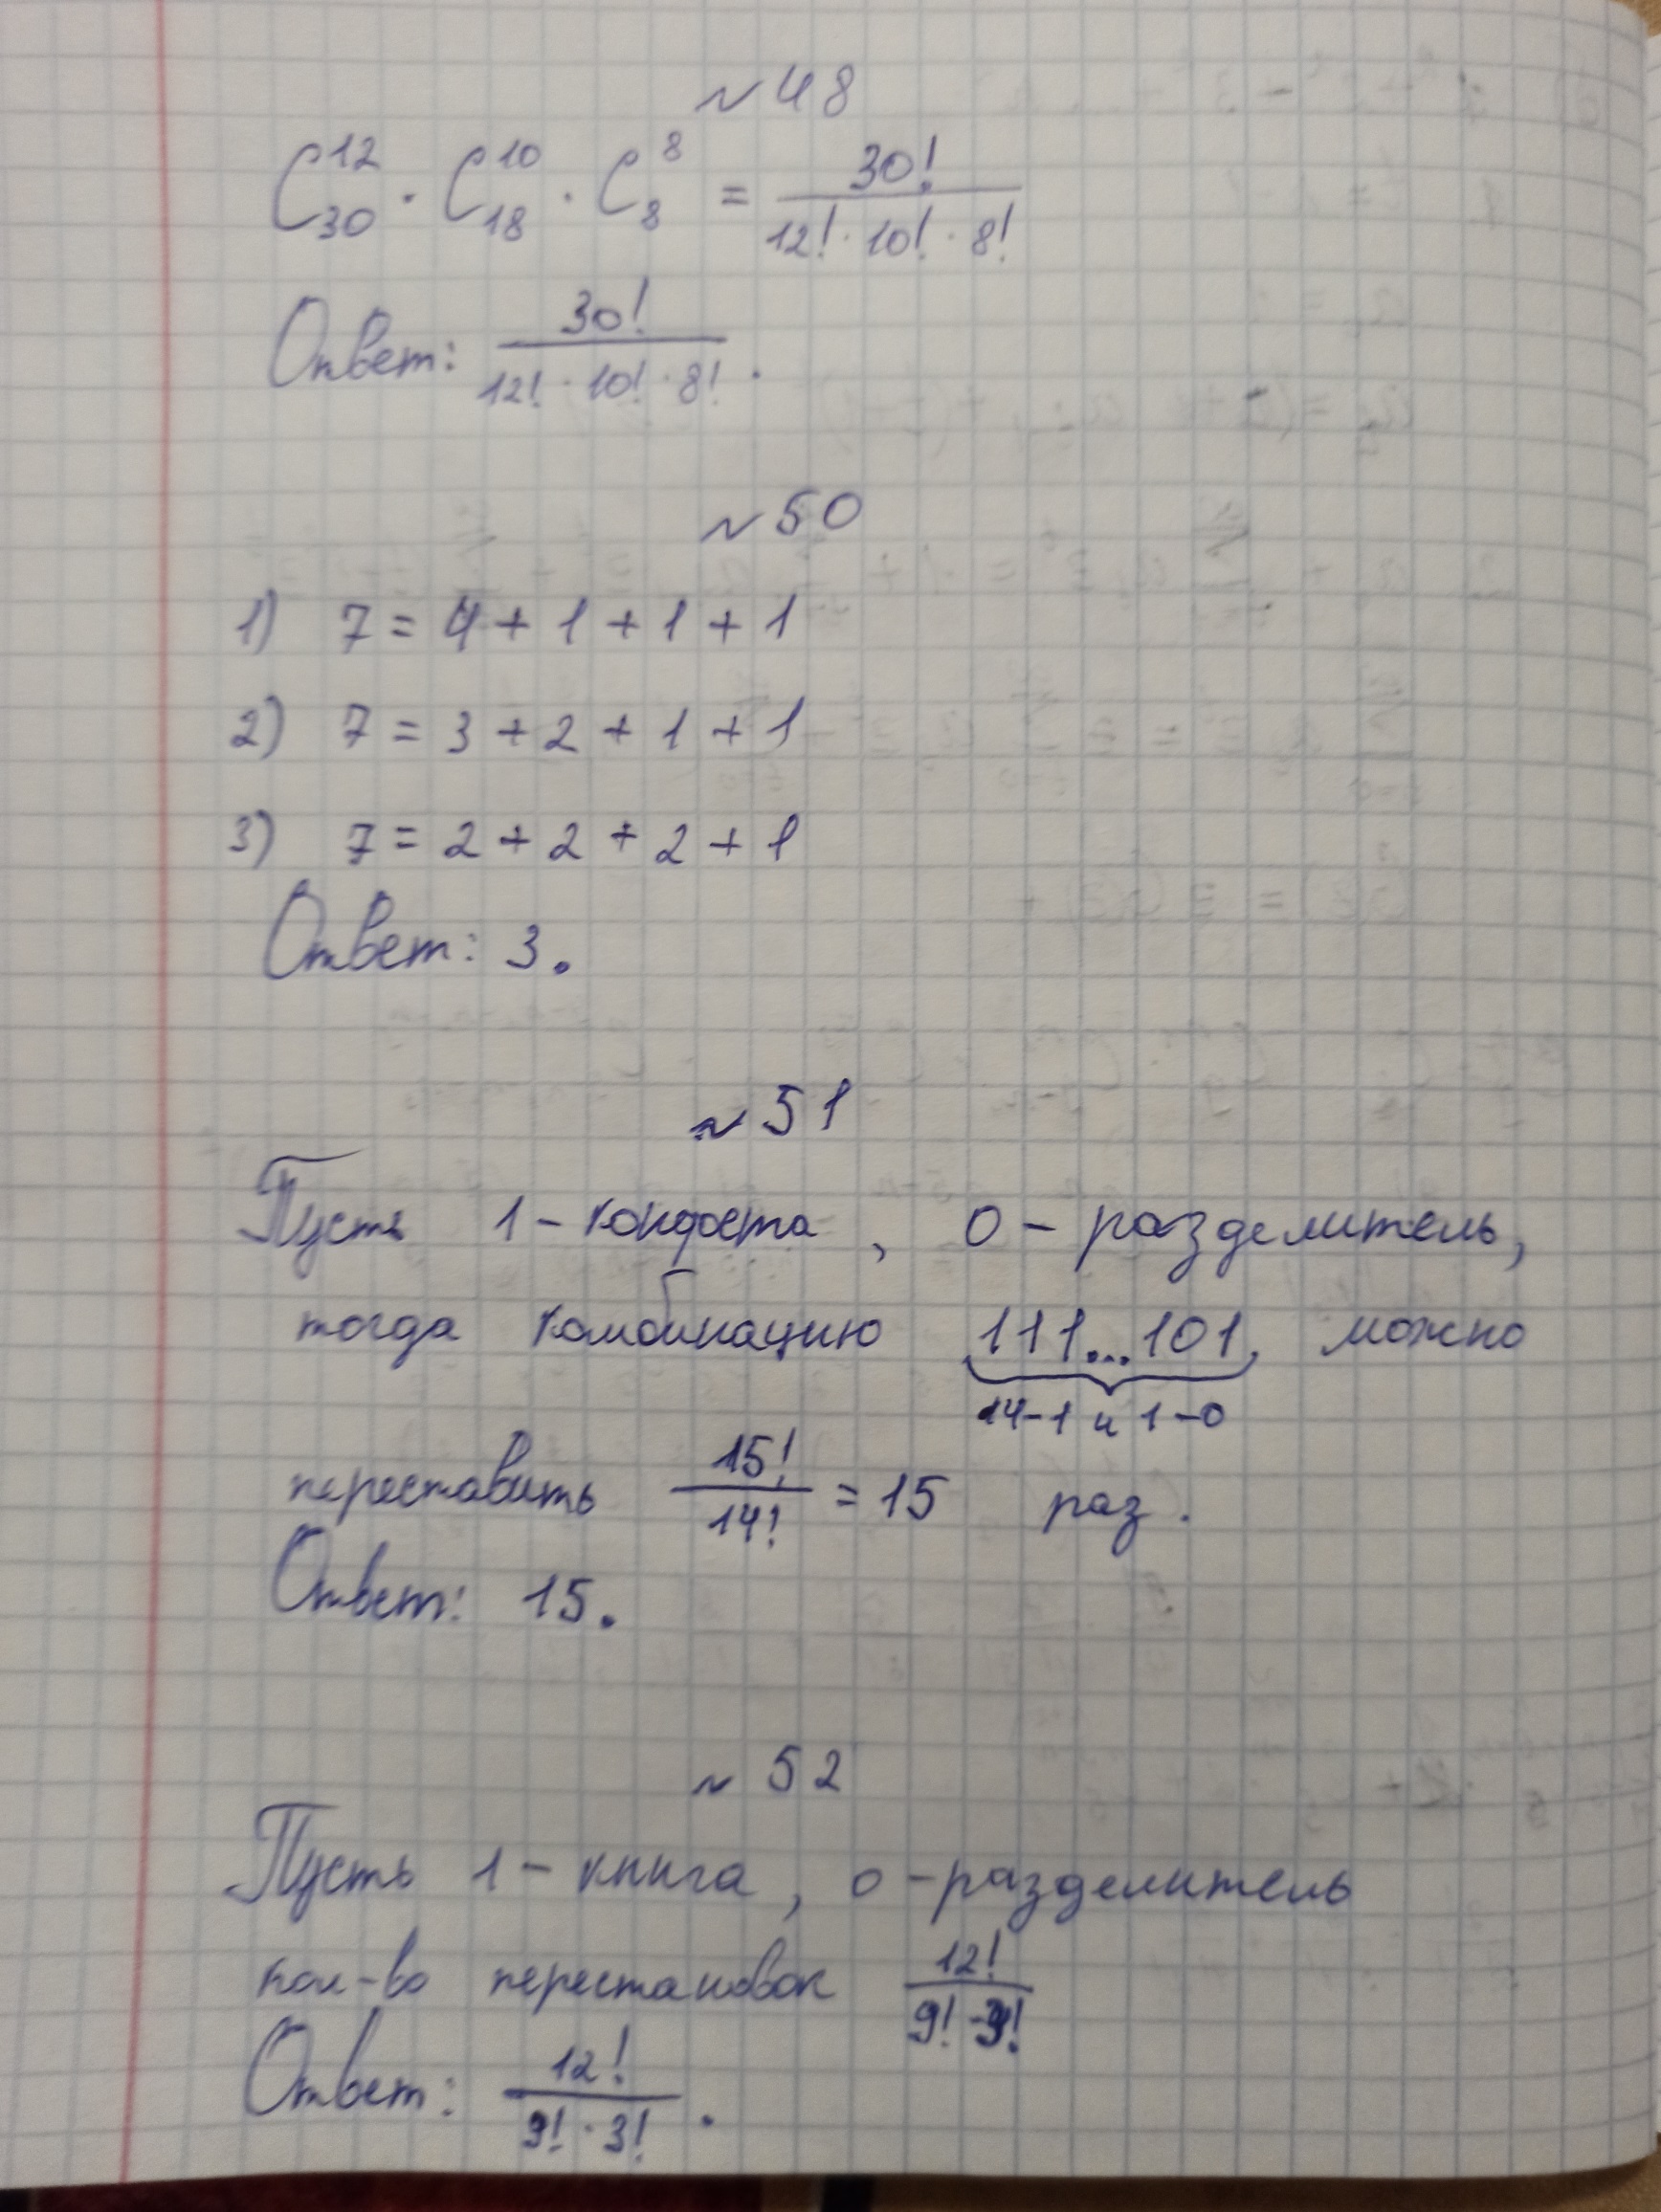 ~48
C₃₀¹² · C₁₈¹⁰ · C₈⁸ = 30! / (12! · 10! · 8!)
Ответ: 30! / (12! · 10! · 8!).
~50
1) 7 = 4 + 1 + 1 + 1
2) 7 = 3 + 2 + 1 + 1
3) 7 = 2 + 2 + 2 + 1
Ответ: 3.
~51
Пусть 1 – конфета, 0 – разделитель,
тогда комбинацию 111...101, можно
14-1 и 1-0
переставить 15! / 14! = 15 раз.
Ответ: 15.
~52
Пусть 1 – книга, 0 – разделитель
кол-во перестановок 12! / (9! · 3!)
Ответ: 12! / (9! · 3!).